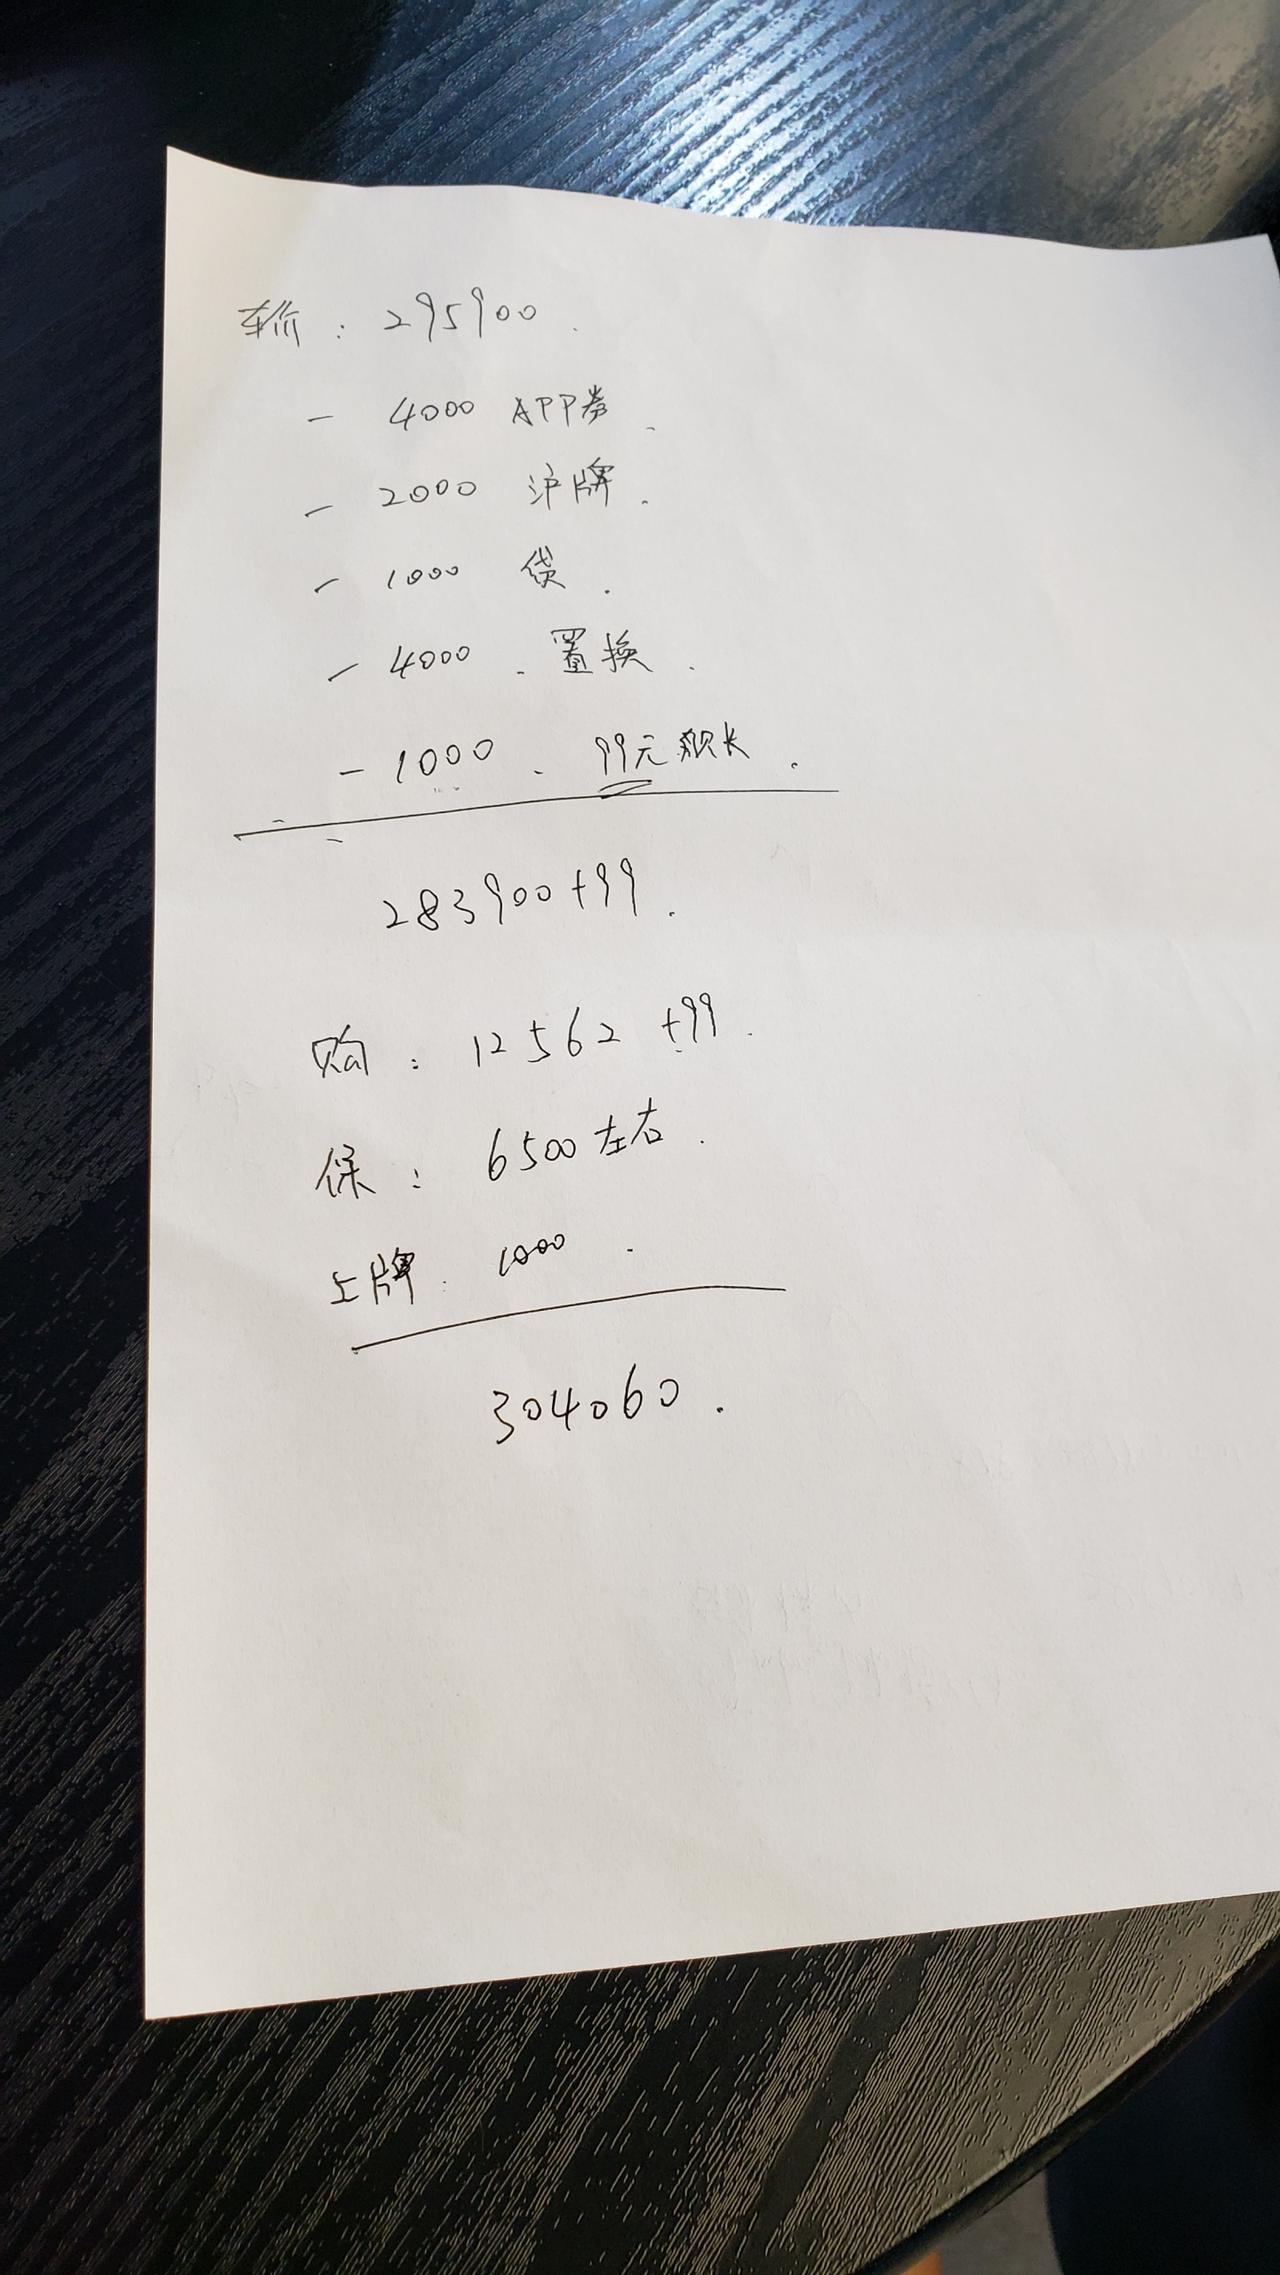 车价：295900.
- 4000 APP券.
- 2000 沪牌.
- 1000 贷.
- 4000. 置换.
- 1000. 99元舰长.
283900+99.
购：12562 +99.
保：6500左右.
上牌. 1000.
304060.